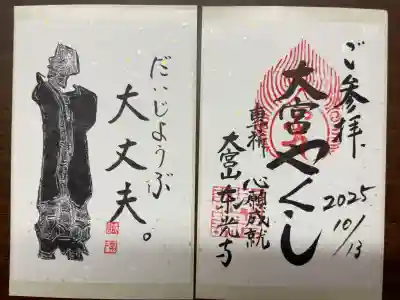 だいじょうぶ
大丈夫。
ご参拝
大宮やくし
心願成就
大宮山東光寺
2025
10/13